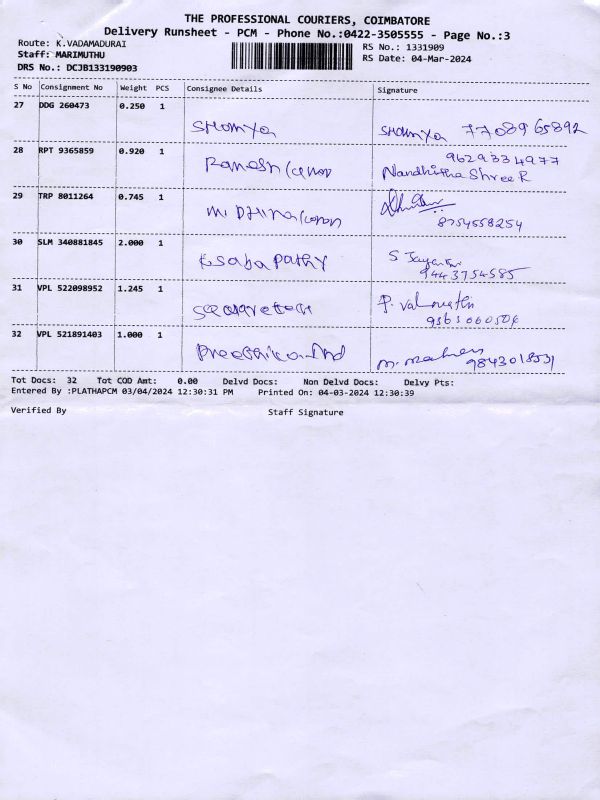 THE PROFESSIONAL COURIERS, COIMBATORE
Delivery Runsheet - PCM - Phone No.:0422-3505555 - Page No.:3
Route: K.VADAMADURAI
Staff: MARIMUTHU
DRS No.: DCJB133190903
RS No.: 1331909
RS Date: 04-Mar-2024
S No Consignment No Weight PCS Consignee Details Signature
27 DDG 260473 0.250 1
Showmya Showmya 7708965892
28 RPT 9365859 0.920 1
9629334977
Ramesh Nandhitha Shree R
29 TRP 8011264 0.745 1
8754558254
30 SLM 340881845 2.000 1
K Sabapathy S
9443754585
31 VPL 522098952 1.245 1
P.
32 VPL 521891403 1.000 1
Tot Docs: 32 Tot COD Amt: 0.00 Delvd Docs: Non Delvd Docs: Delvy Pts:
Entered By :PLATHAPCM 03/04/2024 12:30:31 PM Printed On: 04-03-2024 12:30:39
Verified By Staff Signature